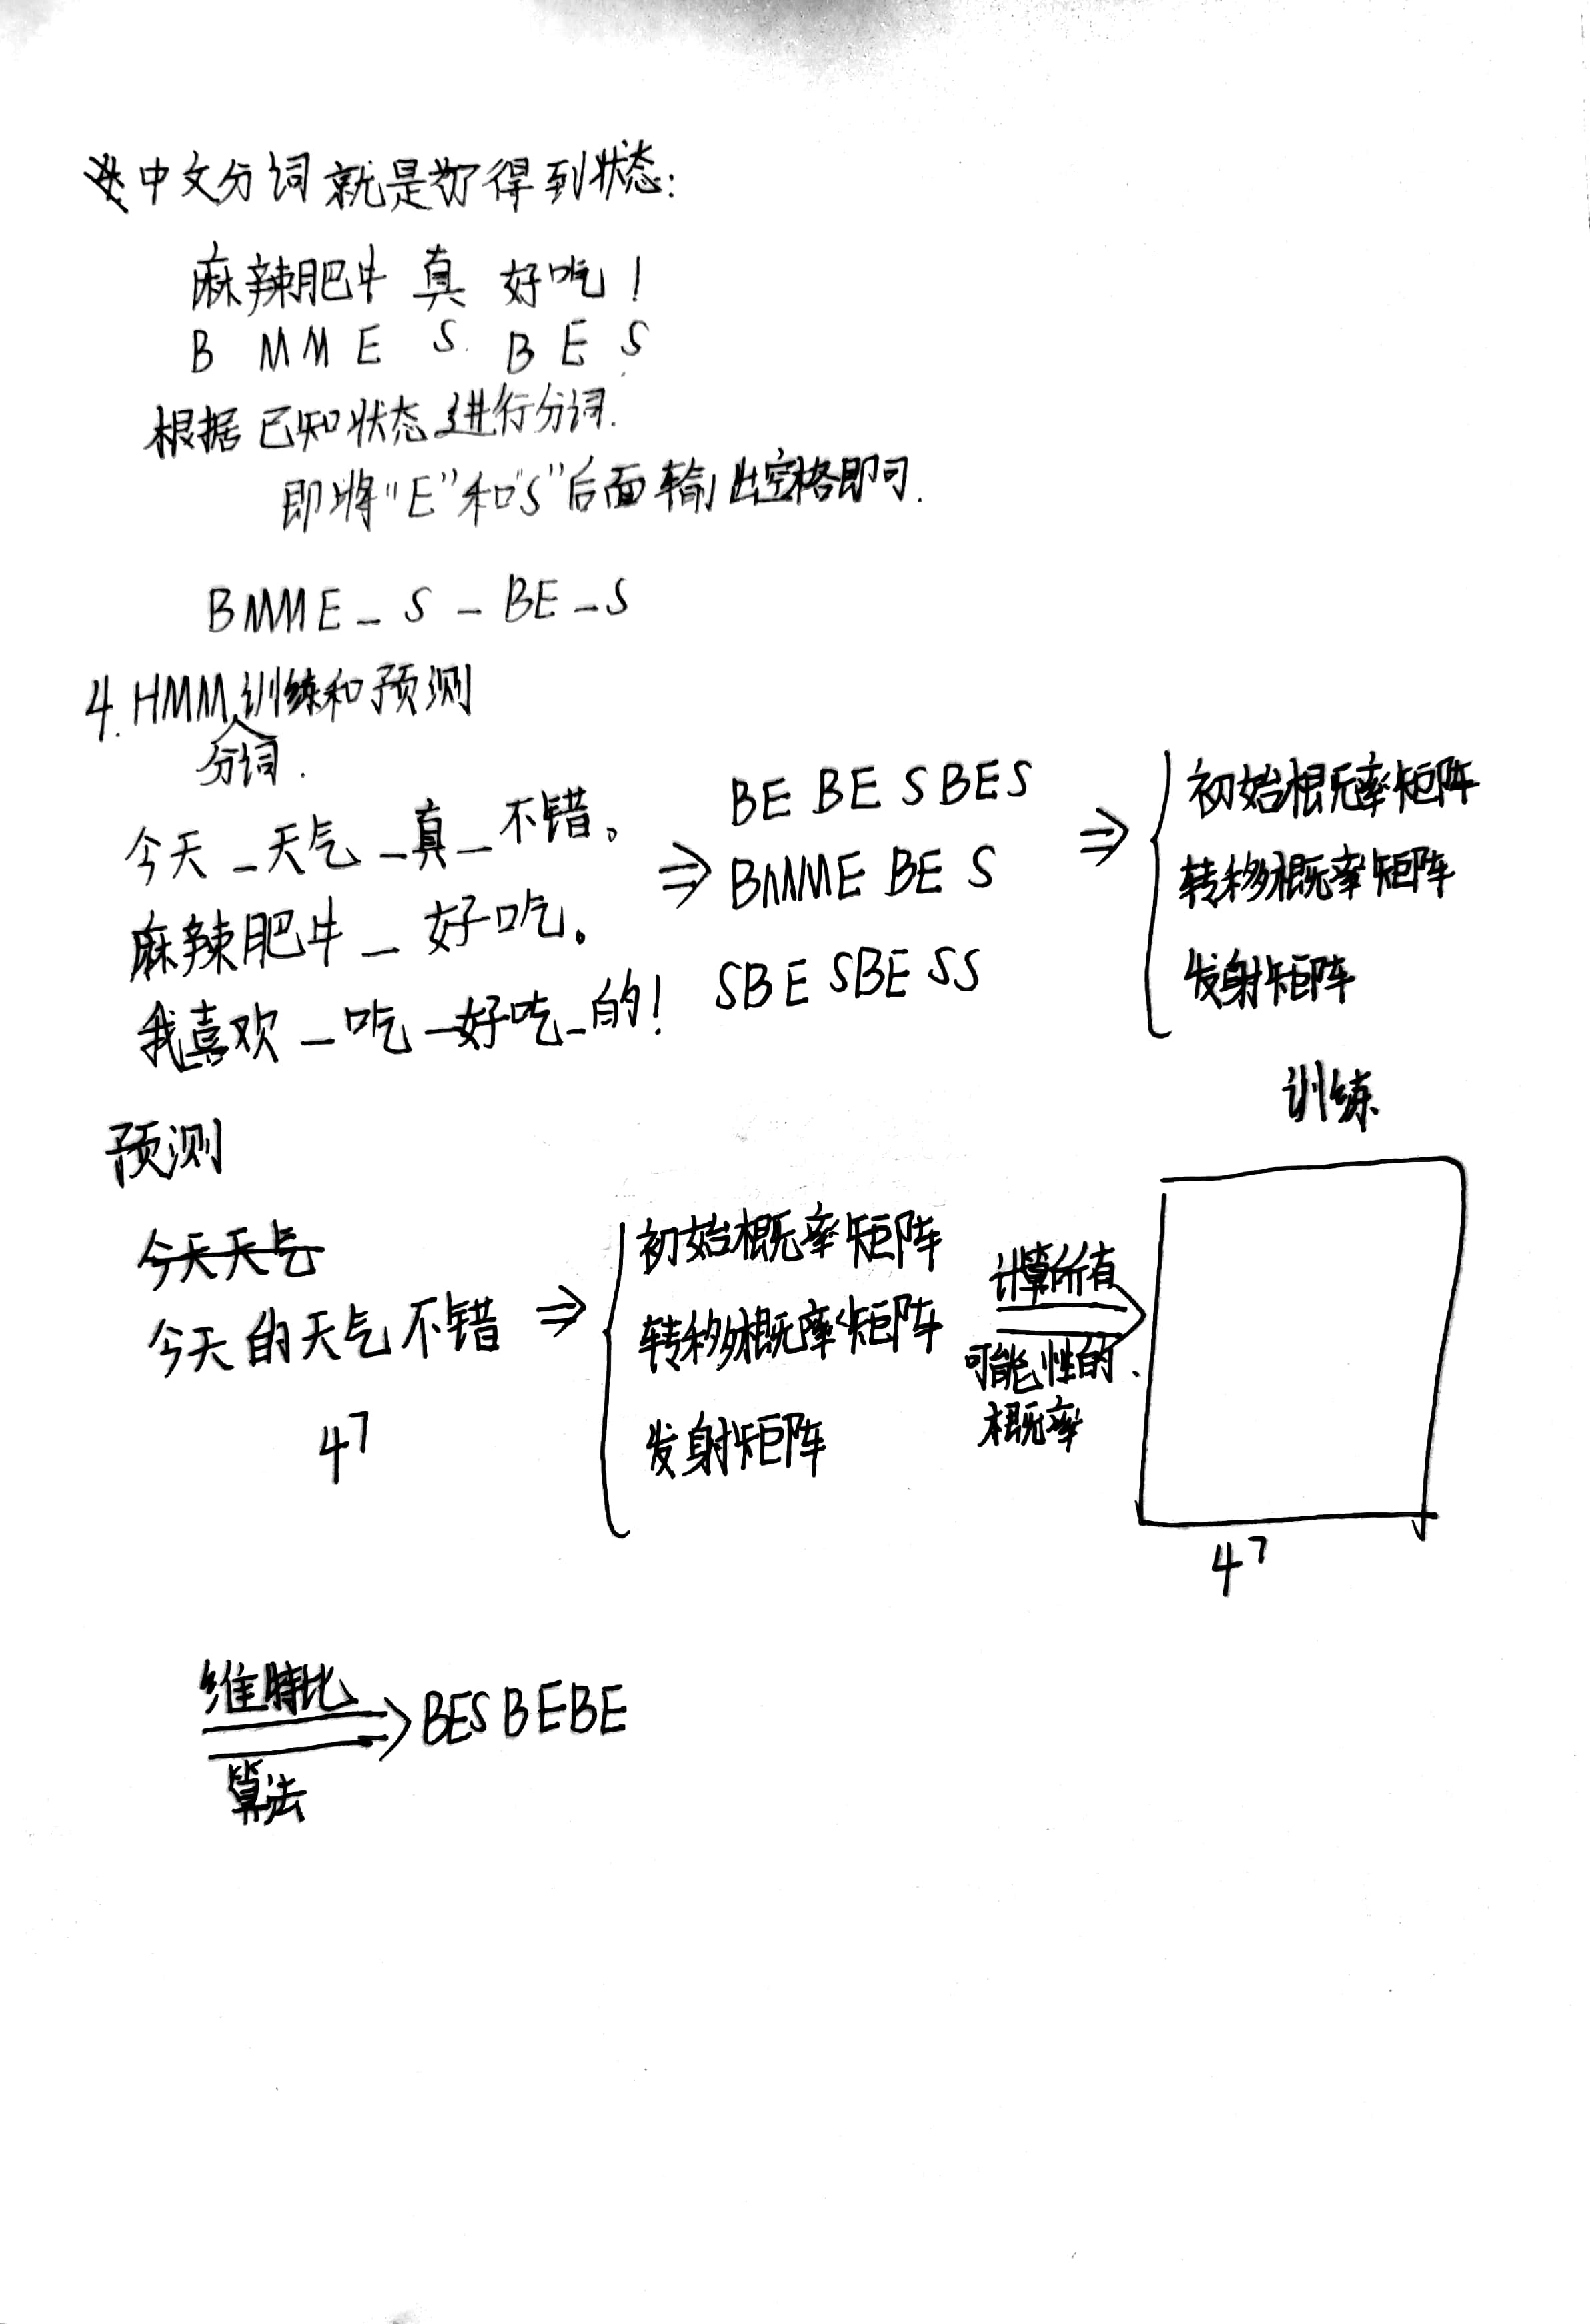 中文分词就是为了得到状态:
麻辣肥牛 真 好吃!
B M M E S B E S
根据已知状态进行分词.
即将"E"和"S"后面输出空格即可.
BMME_S_BE_S
4. HMM训练和预测
分词.
今天_天气_真_不错。
麻辣肥牛_好吃。
我喜欢_吃_好吃_的!
⇒
BE BE S BE S
BMME BE S
SBE SBE SS
⇒
初始概率矩阵
转移概率矩阵
发射矩阵
训练
预测
今天天气
今天的天气不错
4⁷
⇒
初始概率矩阵
转移概率矩阵
发射矩阵
计算所有
可能性的
概率
4⁷
维特比
算法
BES BE BE